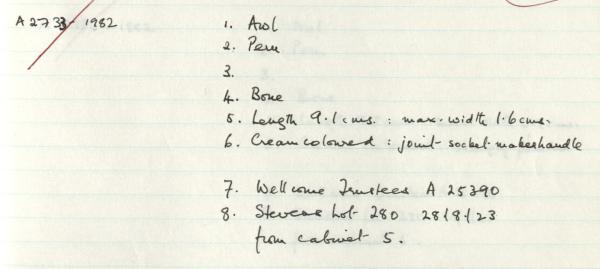 A 2733-1982 1. Awl
2. Peru
3.
4. Bone
5. Length 9.1cms. : max. width 1.6cms.
6. Cream coloured : joint-socket makes handle
7. Wellcome Trustees A 25390
8. Stevens Lot 280 28/8/23
from cabinet 5.